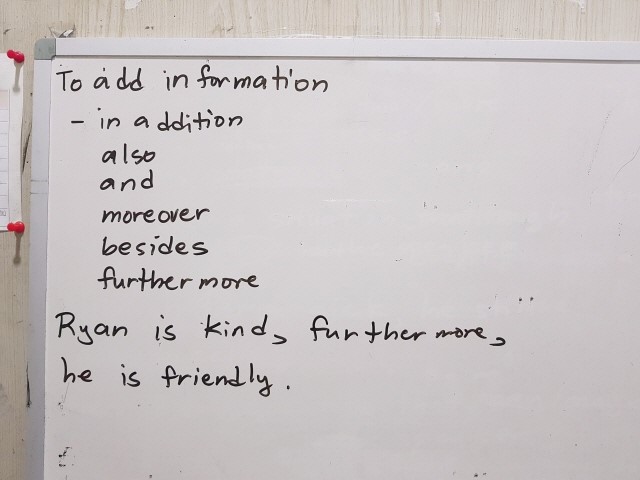 To add information
- in addition
also
and
moreover
besides
furthermore
Ryan is kind, furthermore,
he is friendly.